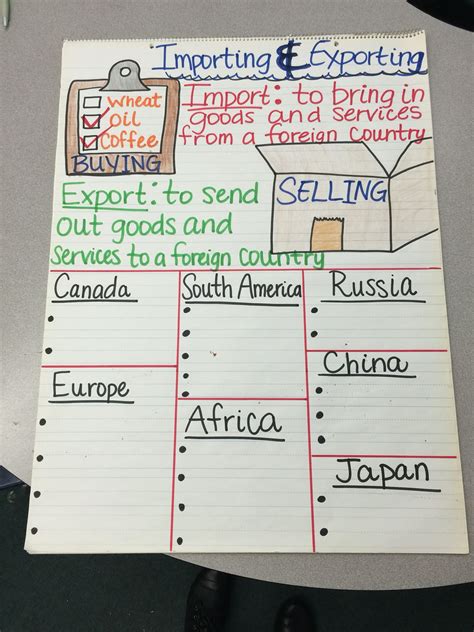 Importing & Exporting
Wheat
Oil
Coffee
BUYING
Import: to bring in
goods and services
from a foreign country
Export: to send
out goods and
services to a foreign country
SELLING
Canada
South America
Russia
Europe
Africa
China
Japan